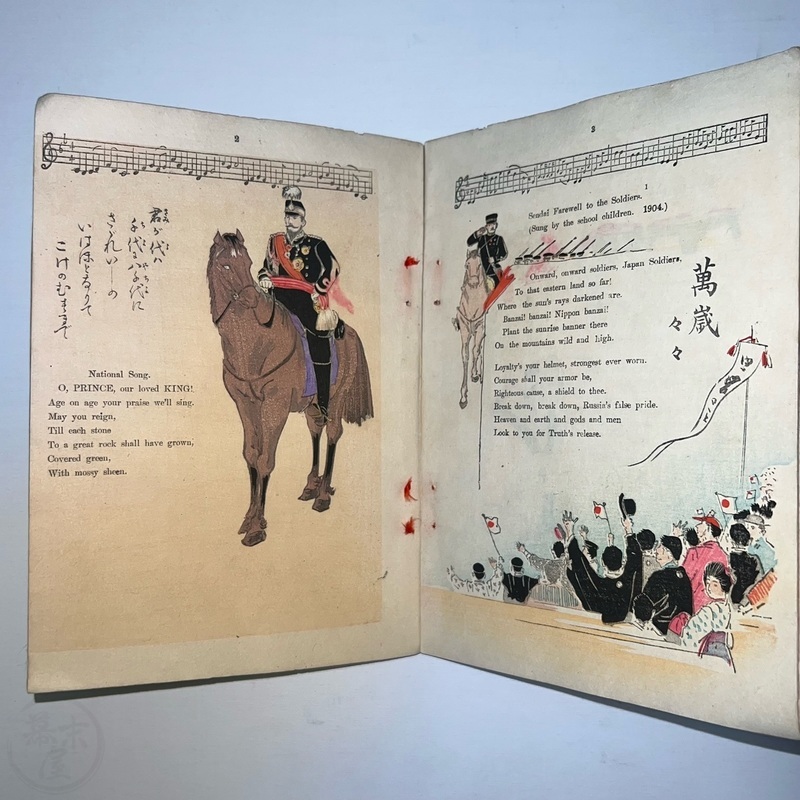 2
君が代ハ
千代に八千代に
さゞれいしの
いはほとなりて
こけのむすまで
National Song.
O, PRINCE, our loved KING!
Age on age your praise we'll sing.
May you reign,
Till each stone
To a great rock shall have grown,
Covered green,
With mossy sheen.
3
1
Sendai Farewell to the Soldiers.
(Sung by the school children. 1904.)
Onward, onward soldiers, Japan Soldiers,
To that eastern land so far!
Where the sun's rays darkened are.
Banzai! banzai! Nippon banzai!
Plant the sunrise banner there
On the mountains wild and high.
Loyalty's your helmet, strongest ever worn.
Courage shall your armor be,
Righteous cause, a shield to thee.
Break down, break down, Russia's false pride.
Heaven and earth and gods and men
Look to you for Truth's release.
萬歳
々々
幕末屋